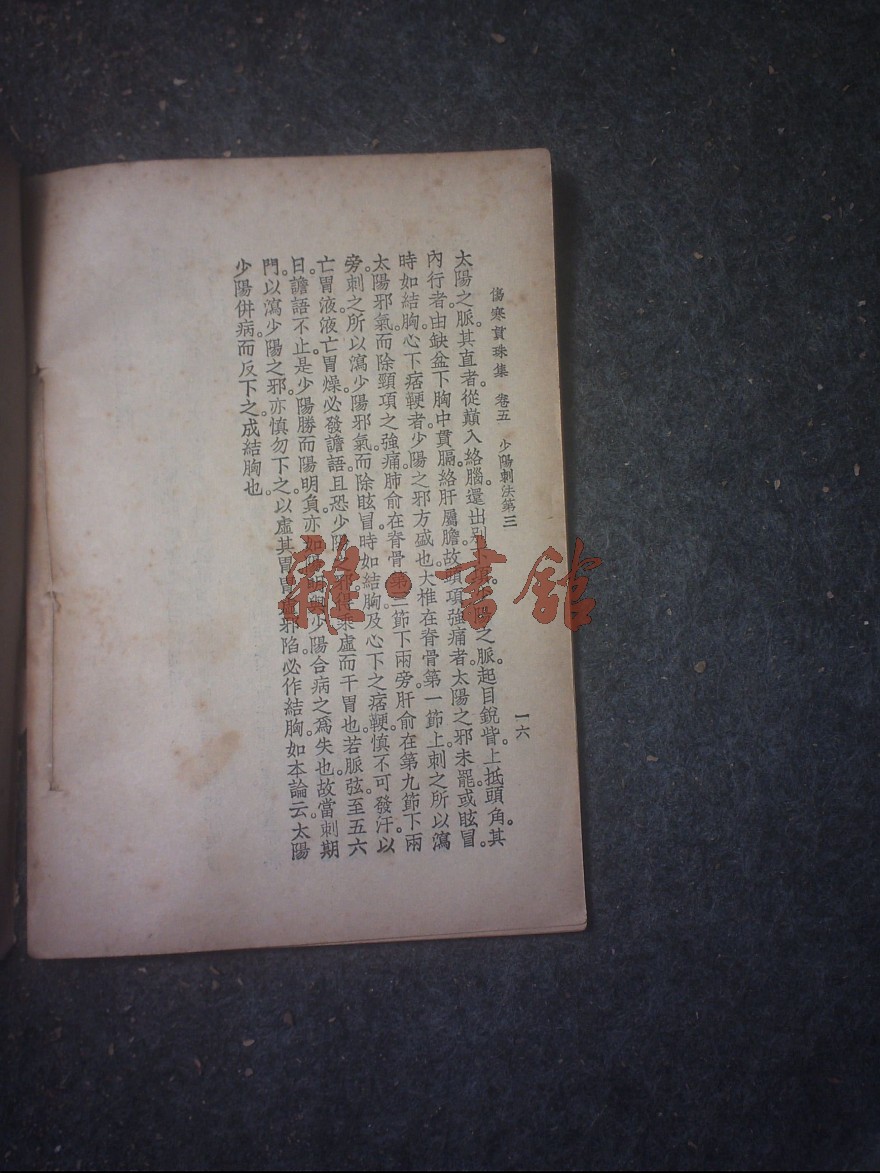 傷寒貫珠集 卷五 少陽刺法第三 一六
太陽之脈。其直者。從巔入絡腦。還出別下項。少陽之脈。起目銳眥。上抵頭角。其
內行者。由缺盆下胸中。貫膈。絡肝屬膽。故頭項強痛者。太陽之邪未罷。或眩冒。
時如結胸。心下痞鞕者。少陽之邪方盛也。大椎在脊骨第一節上。刺之所以瀉
太陽邪氣。而除頸項之強痛。肺俞在脊骨第三節下兩旁。肝俞在第九節下兩
旁。刺之所以瀉少陽邪氣。而除眩冒。時如結胸。及心下之痞鞕。慎不可發汗。以
亡胃液。液亡胃燥。必發譫語。且恐少陽之邪。得乘虛而干胃也。若脈弦。至五六
日。譫語不止。是少陽勝而陽明負。亦如陽明與少陽合病之為失也。故當刺期
門。以瀉少陽之邪。亦慎勿下之。以虛其胃。胃虛邪陷。必作結胸。如本論云。太陽
少陽併病。而反下之。成結胸也。
雜·書館